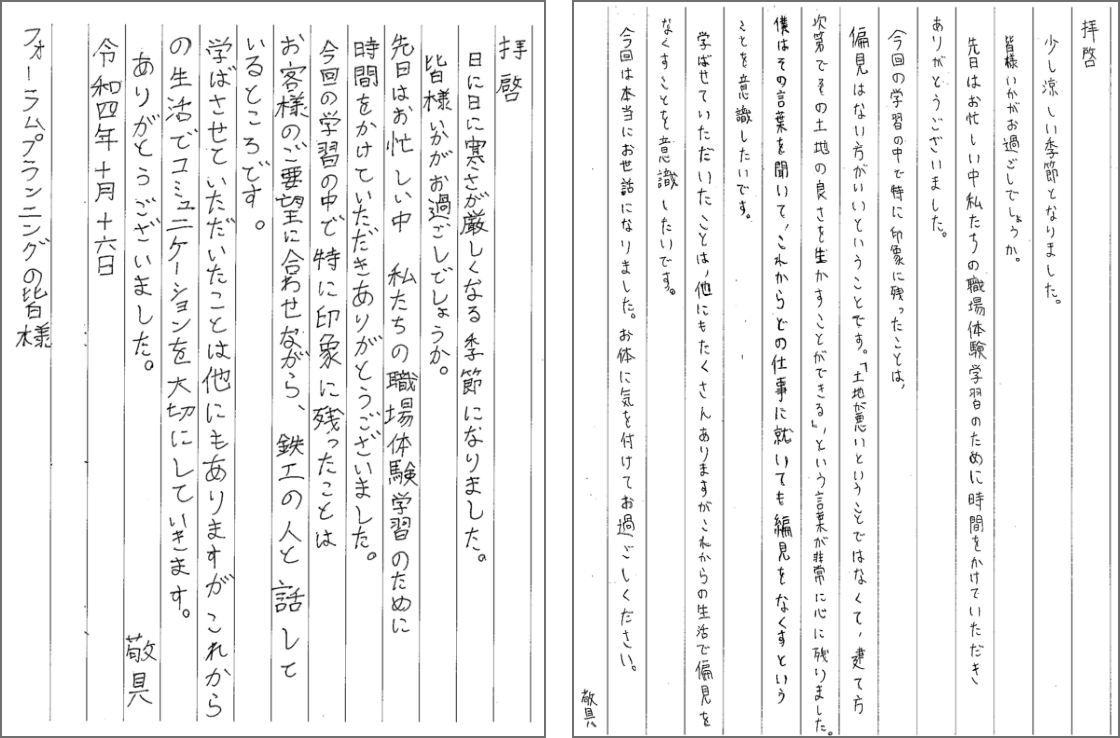 拝啓
日に日に寒さが厳しくなる季節になりました。
皆様いかがお過ごしでしょうか。
先日はお忙しい中 私たちの職場体験学習のために
時間をかけていただきありがとうございました。
今回の学習の中で特に印象に残ったことは
お客様のご要望に合わせながら、鉄工の人と話して
いるところです。
学ばさせていただいたことは他にもありますがこれから
の生活でコミュニケーションを大切にしていきます。
ありがとうございました。
敬具
令和四年十月十六日
フォーラムプランニングの皆様
拝啓
少し涼しい季節となりました。
皆様いかがお過ごしでしょうか。
先日はお忙しい中私たちの職場体験学習のために時間をかけていただき
ありがとうございました。
今回の学習の中で特に印象に残ったことは、
偏見はない方がいいということです。「土地が悪いということではなくて、建て方
次第でその土地の良さを生かすことができる」、という言葉が非常に心に残りました。
僕はその言葉を聞いて、これからどの仕事に就いても編見をなくすという
ことを意識したいです。
学ばせていただいたことは、他にもたくさんありますがこれからの生活で偏見を
なくすことを意識したいです。
今回は本当にお世話になりました。お体に気を付けてお過ごしください。
敬具